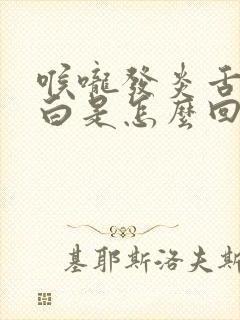 喉嚨發炎舌
白是怎麼回
基耶斯洛夫斯